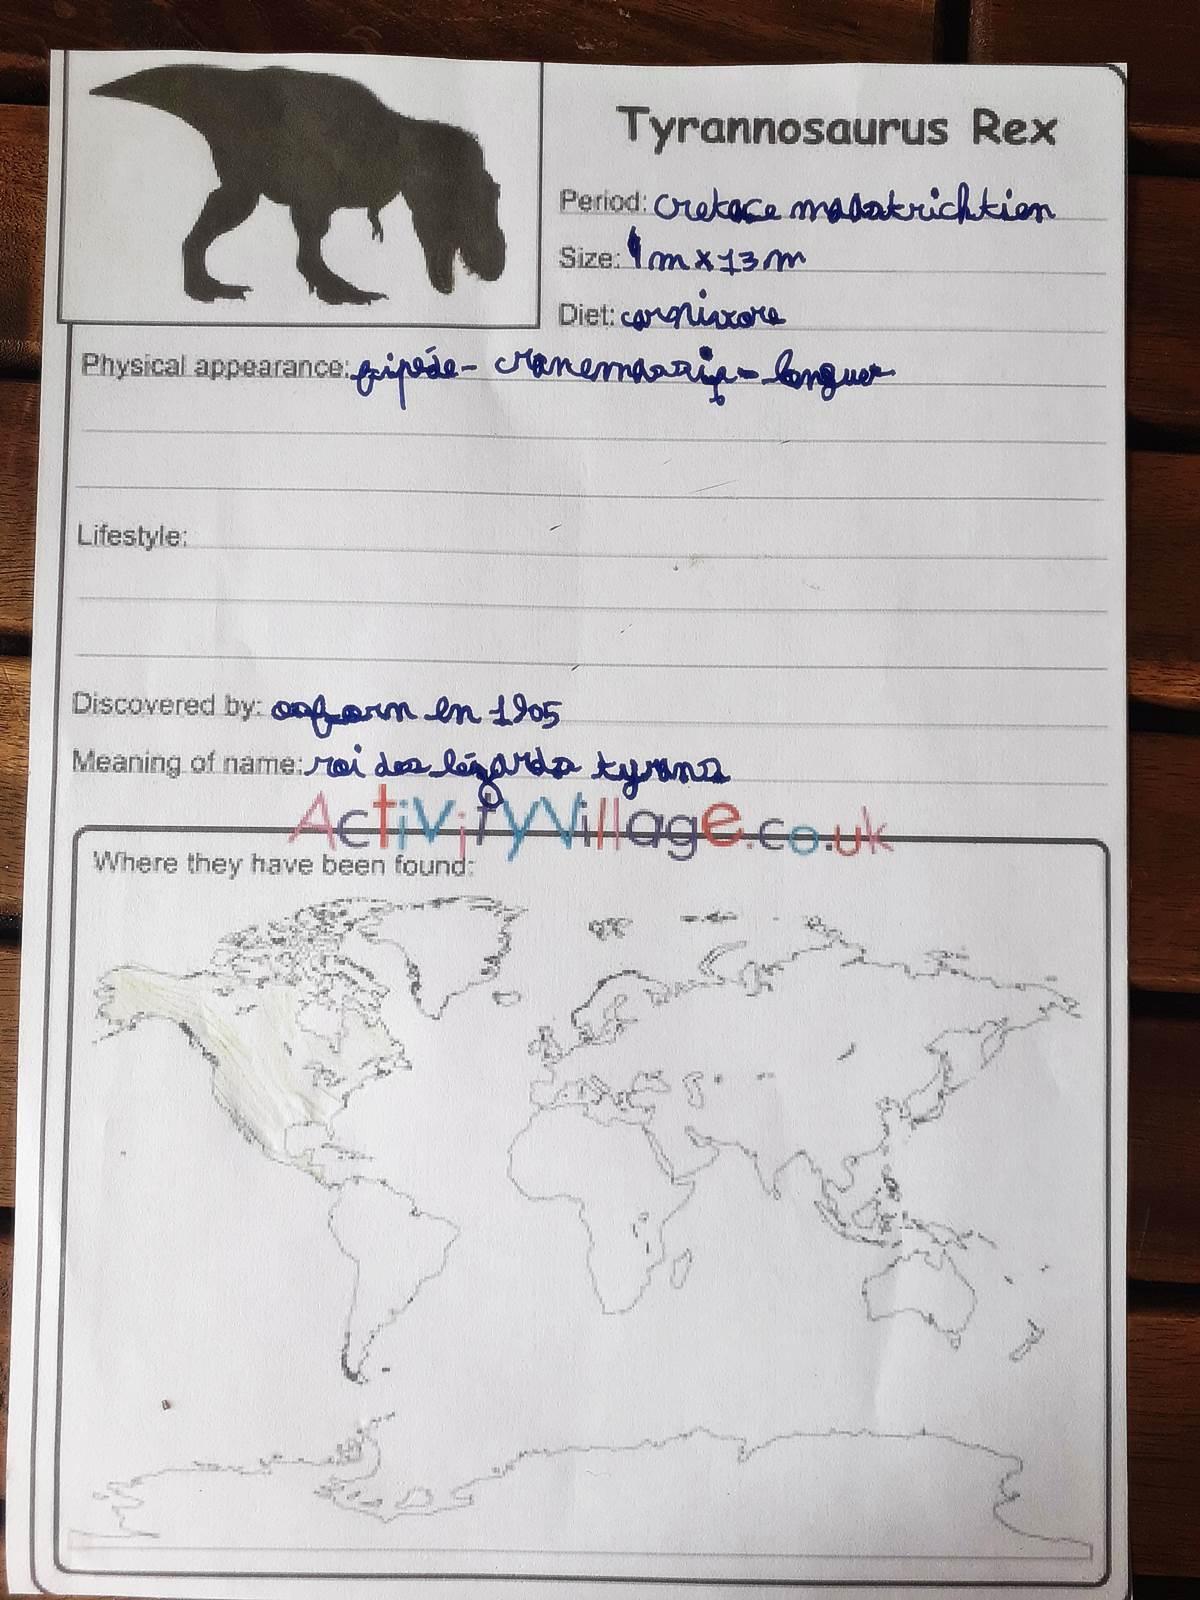 Tyrannosaurus Rex
Period: cretace maastrichtien
Size: 4m x 13 m
Diet: carnivore
Physical appearance: bipéde - crane massif - longue
Lifestyle:
Discovered by: osborn en 1905
Meaning of name: roi des lézards tyrans
ActivityVillage.co.uk
Where they have been found: